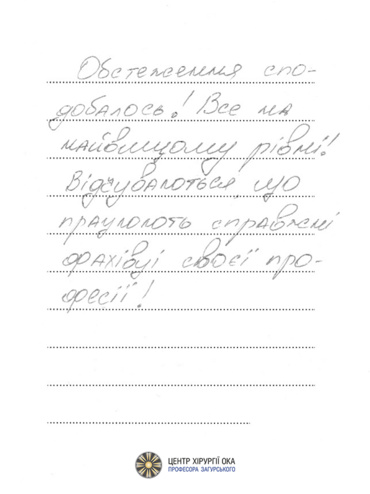 Обстеження спо-
добалось! Все на
найвищому рівні!
Відчувається, що
працюють справжні
фахівці своєї про-
фесії!
ЦЕНТР ХІРУРГІЇ ОКА
ПРОФЕСОРА ЗАГУРСЬКОГО